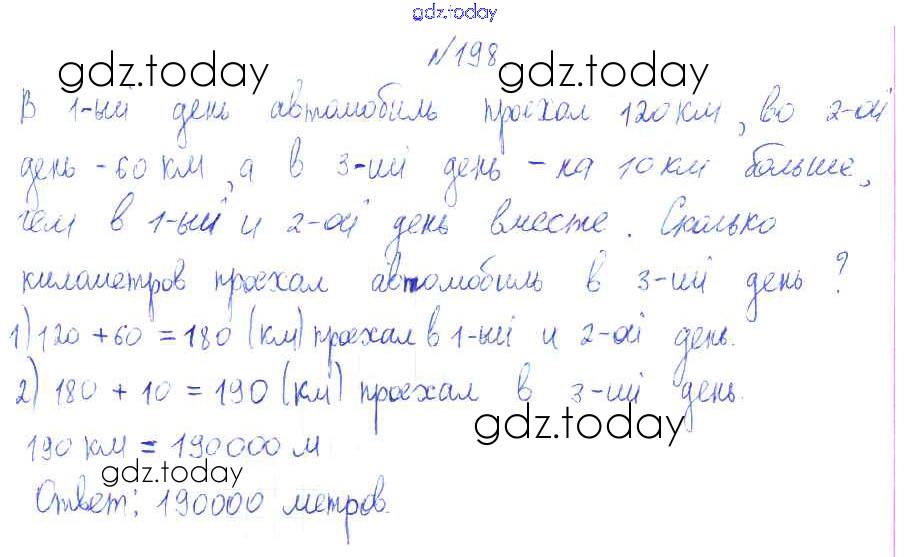 gdz.today
№198
gdz.today gdz.today
В 1-ый день автомобиль проехал 120 км, во 2-ой
день - 60 км, а в 3-ий день - на 10 км больше,
чем в 1-ый и 2-ой день вместе. Сколько
километров проехал автомобиль в 3-ий день?
1) 120 + 60 = 180 (км) проехал в 1-ый и 2-ой день.
2) 180 + 10 = 190 (км) проехал в 3-ий день.
gdz.today
190 км = 190000 м
gdz.today
Ответ: 190000 метров.